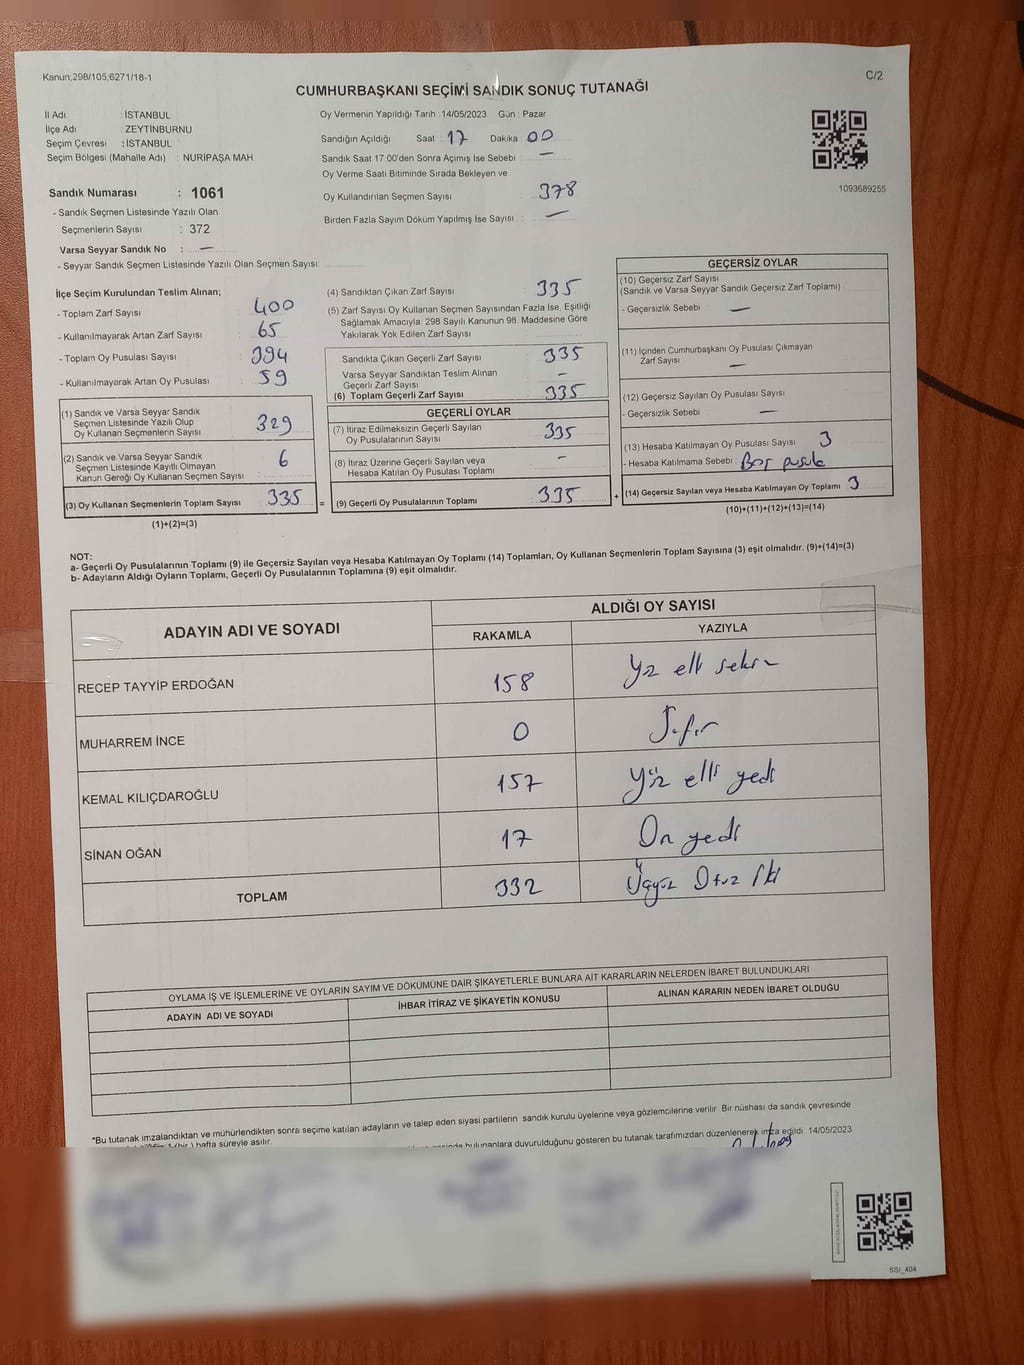 Kanun;298/105,6271/18-1
C/2
CUMHURBAŞKANI SEÇİMİ SANDIK SONUÇ TUTANAĞI
İl Adı : İSTANBUL
İlçe Adı : ZEYTİNBURNU
Seçim Çevresi : İSTANBUL
Seçim Bölgesi (Mahalle Adı) : NURİPAŞA MAH.
Sandık Numarası : 1061
- Sandık Seçmen Listesinde Yazılı Olan
Seçmenlerin Sayısı : 372
Varsa Seyyar Sandık No : —
- Seyyar Sandık Seçmen Listesinde Yazılı Olan Seçmen Sayısı:
Oy Vermenin Yapıldığı Tarih : 14/05/2023 Gün : Pazar
Sandığın Açıldığı Saat : 17 Dakika : 00
Sandık Saat 17:00'den Sonra Açımış İse Sebebi : —
Oy Verme Saati Bitiminde Sırada Bekleyen ve
Oy Kullandırılan Seçmen Sayısı : 378
Birden Fazla Sayım Döküm Yapılmış İse Sayısı : —
1093689255
İlçe Seçim Kurulundan Teslim Alınan;
- Toplam Zarf Sayısı : 400
- Kullanılmayarak Artan Zarf Sayısı : 65
- Toplam Oy Pusulası Sayısı : 394
- Kullanılmayarak Artan Oy Pusulası : 59
(1) Sandık ve Varsa Seyyar Sandık
Seçmen Listesinde Yazılı Olup
Oy Kullanan Seçmenlerin Sayısı : 329
(2) Sandık ve Varsa Seyyar Sandık
Seçmen Listesinde Kayıtlı Olmayan
Kanun Gereği Oy Kullanan Seçmen Sayısı : 6
(3) Oy Kullanan Seçmenlerin Toplam Sayısı 335 =
(1)+(2)=(3)
(4) Sandıktan Çıkan Zarf Sayısı : 335
(5) Zarf Sayısı Oy Kullanan Seçmen Sayısından Fazla İse, Eşitliği
Sağlamak Amacıyla: 298 Sayılı Kanunun 98. Maddesine Göre
Yakılarak Yok Edilen Zarf Sayısı :
Sandıkta Çıkan Geçerli Zarf Sayısı : 335
Varsa Seyyar Sandıktan Teslim Alınan
Geçerli Zarf Sayısı : -
(6) Toplam Geçerli Zarf Sayısı : 335
GEÇERLİ OYLAR
(7) İtiraz Edilmeksizin Geçerli Sayılan
Oy Pusulalarının Sayısı : 335
(8) İtiraz Üzerine Geçerli Sayılan veya
Hesaba Katılan Oy Pusulası Toplamı : -
(9) Geçerli Oy Pusulalarının Toplamı : 335 +
GEÇERSİZ OYLAR
(10) Geçersiz Zarf Sayısı
(Sandık ve Varsa Seyyar Sandık Geçersiz Zarf Toplamı)
- Geçersizlik Sebebi : —
(11) İçinden Cumhurbaşkanı Oy Pusulası Çıkmayan
Zarf Sayısı : —
(12) Geçersiz Sayılan Oy Pusulası Sayısı :
- Geçersizlik Sebebi : —
(13) Hesaba Katılmayan Oy Pusulası Sayısı : 3
- Hesaba Katılmama Sebebi : Boş pusula
(14) Geçersiz Sayılan veya Hesaba Katılmayan Oy Toplamı : 3
(10)+(11)+(12)+(13)=(14)
NOT:
a- Geçerli Oy Pusulalarının Toplamı (9) ile Geçersiz Sayılan veya Hesaba Katılmayan Oy Toplamı (14) Toplamları, Oy Kullanan Seçmenlerin Toplam Sayısına (3) eşit olmalıdır. (9)+(14)=(3)
b- Adayların Aldığı Oyların Toplamı, Geçerli Oy Pusulalarının Toplamına (9) eşit olmalıdır.
ADAYIN ADI VE SOYADI
ALDIĞI OY SAYISI
RAKAMLA YAZIYLA
RECEP TAYYİP ERDOĞAN 158 Yüz elli sekiz
MUHARREM İNCE 0 Sıfır
KEMAL KILIÇDAROĞLU 157 Yüz elli yedi
SİNAN OĞAN 17 On yedi
TOPLAM 332 Üçyüz Otuz İki
OYLAMA İŞ VE İŞLEMLERİNE VE OYLARIN SAYIM VE DÖKÜMÜNE DAİR ŞİKAYETLERLE BUNLARA AİT KARARLARIN NELERDEN İBARET BULUNDUKLARI
ADAYIN ADI VE SOYADI İHBAR İTİRAZ VE ŞİKAYETİN KONUSU ALINAN KARARIN NEDEN İBARET OLDUĞU
*Bu tutanak imzalandıktan ve mühürlendikten sonra seçime katılan adayların ve talep eden siyasi partilerin sandık kurulu üyelerine veya gözlemcilerine verilir. Bir nüshası da sandık çevresinde
hafta süreyle asılır.
bulunanlara duyurulduğunu gösteren bu tutanak tarafımızdan düzenlenerek imza edildi. 14/05/2023
SSI_404